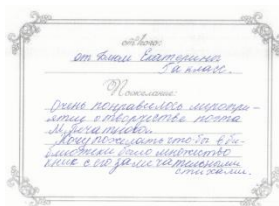 от кого:
от Блем Екатерины
5а класс.
Пожелание:
Очень понравилось меропри-
ятие о творчестве поэта
М. Бочатнов.
Хочу пожелать что бы в би-
блиотеки было множество
книг с его замечательными
стихами.